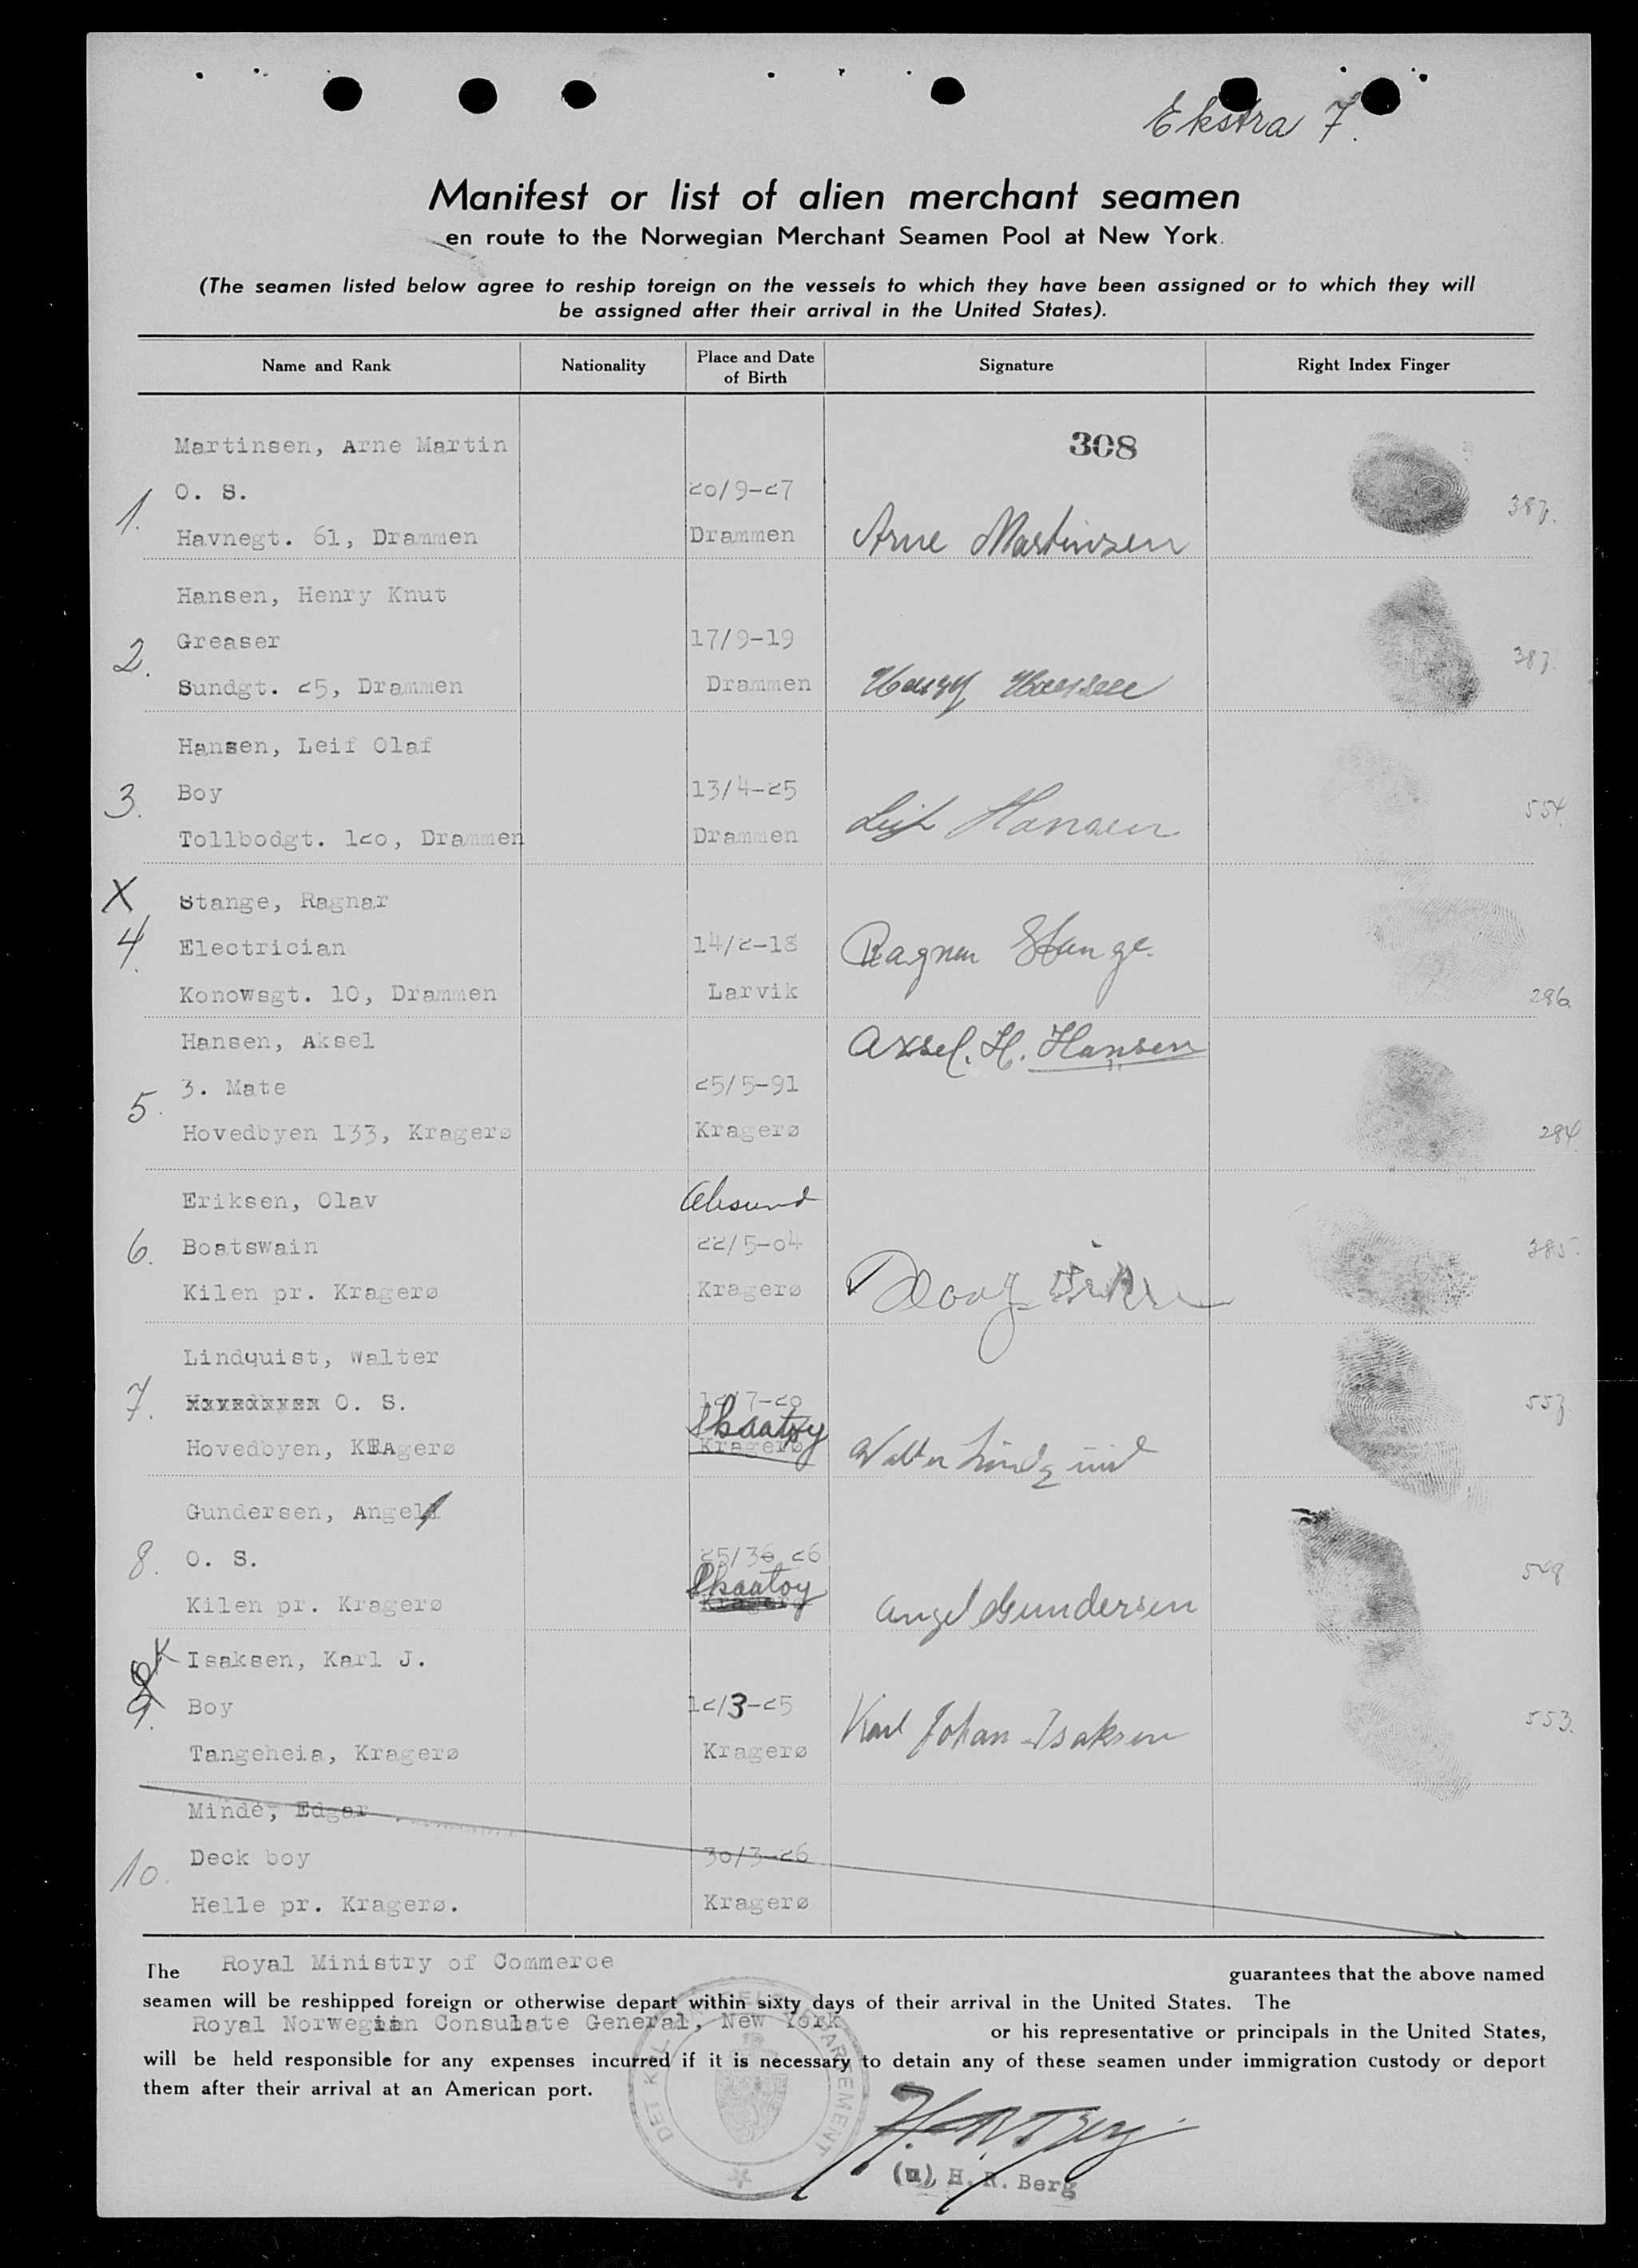 Ekstra 7.
Manifest or list of alien merchant seamen
en route to the Norwegian Merchant Seamen Pool at New York.
(The seamen listed below agree to reship foreign on the vessels to which they have been assigned or to which they will
be assigned after their arrival in the United States).
Name and Rank Nationality Place and Date of Birth Signature Right Index Finger
Martinsen, Arne Martin 308
1. O. S. 20/9-27 387.
Havnegt. 61, Drammen Drammen Arne Martinsen
Hansen, Henry Knut
2. Greaser 17/9-19 387.
Sundgt. 25, Drammen Drammen Henry Hansen
Hansen, Leif Olaf
3. Boy 13/4-25 554.
Tollbodgt. 120, Drammen Drammen Leif Hansen
X Stange, Ragnar
4. Electrician 14/2-18 Ragnar Stange.
Konowsgt. 10, Drammen Larvik 286
Hansen, Aksel Axsel. H. Hansen
5. 3. Mate 25/5-91
Hovedbyen 133, Kragerø Kragerø 284.
Eriksen, Olav Alesund
6. Boatswain 22/5-04 385.
Kilen pr. Kragerø Kragerø
Lindquist, Walter
7. O. S. 12/7-20 557
Skaatøy
Hovedbyen, KRAgerø Kragerø Walter Lindquist
Gundersen, Angell
8. O. S. 25/36 26 548
Skaatoy
Kilen pr. Kragerø Kragerø Angel Gundersen
X Isaksen, Karl J.
9. Boy 12/3-25 Karl Johan Isaksen 553.
Tangeheia, Kragerø Kragerø
Minde, Edgar
10. Deck boy 30/3-26
Helle pr. Kragerø. Kragerø
The Royal Ministry of Commerce guarantees that the above named
seamen will be reshipped foreign or otherwise depart within sixty days of their arrival in the United States. The
Royal Norwegian Consulate General, New York or his representative or principals in the United States,
will be held responsible for any expenses incurred if it is necessary to detain any of these seamen under immigration custody or deport
them after their arrival at an American port.
DET KGL. HANDELSDEPARTEMENT
H. R. Berg
(u) H. R. Berg